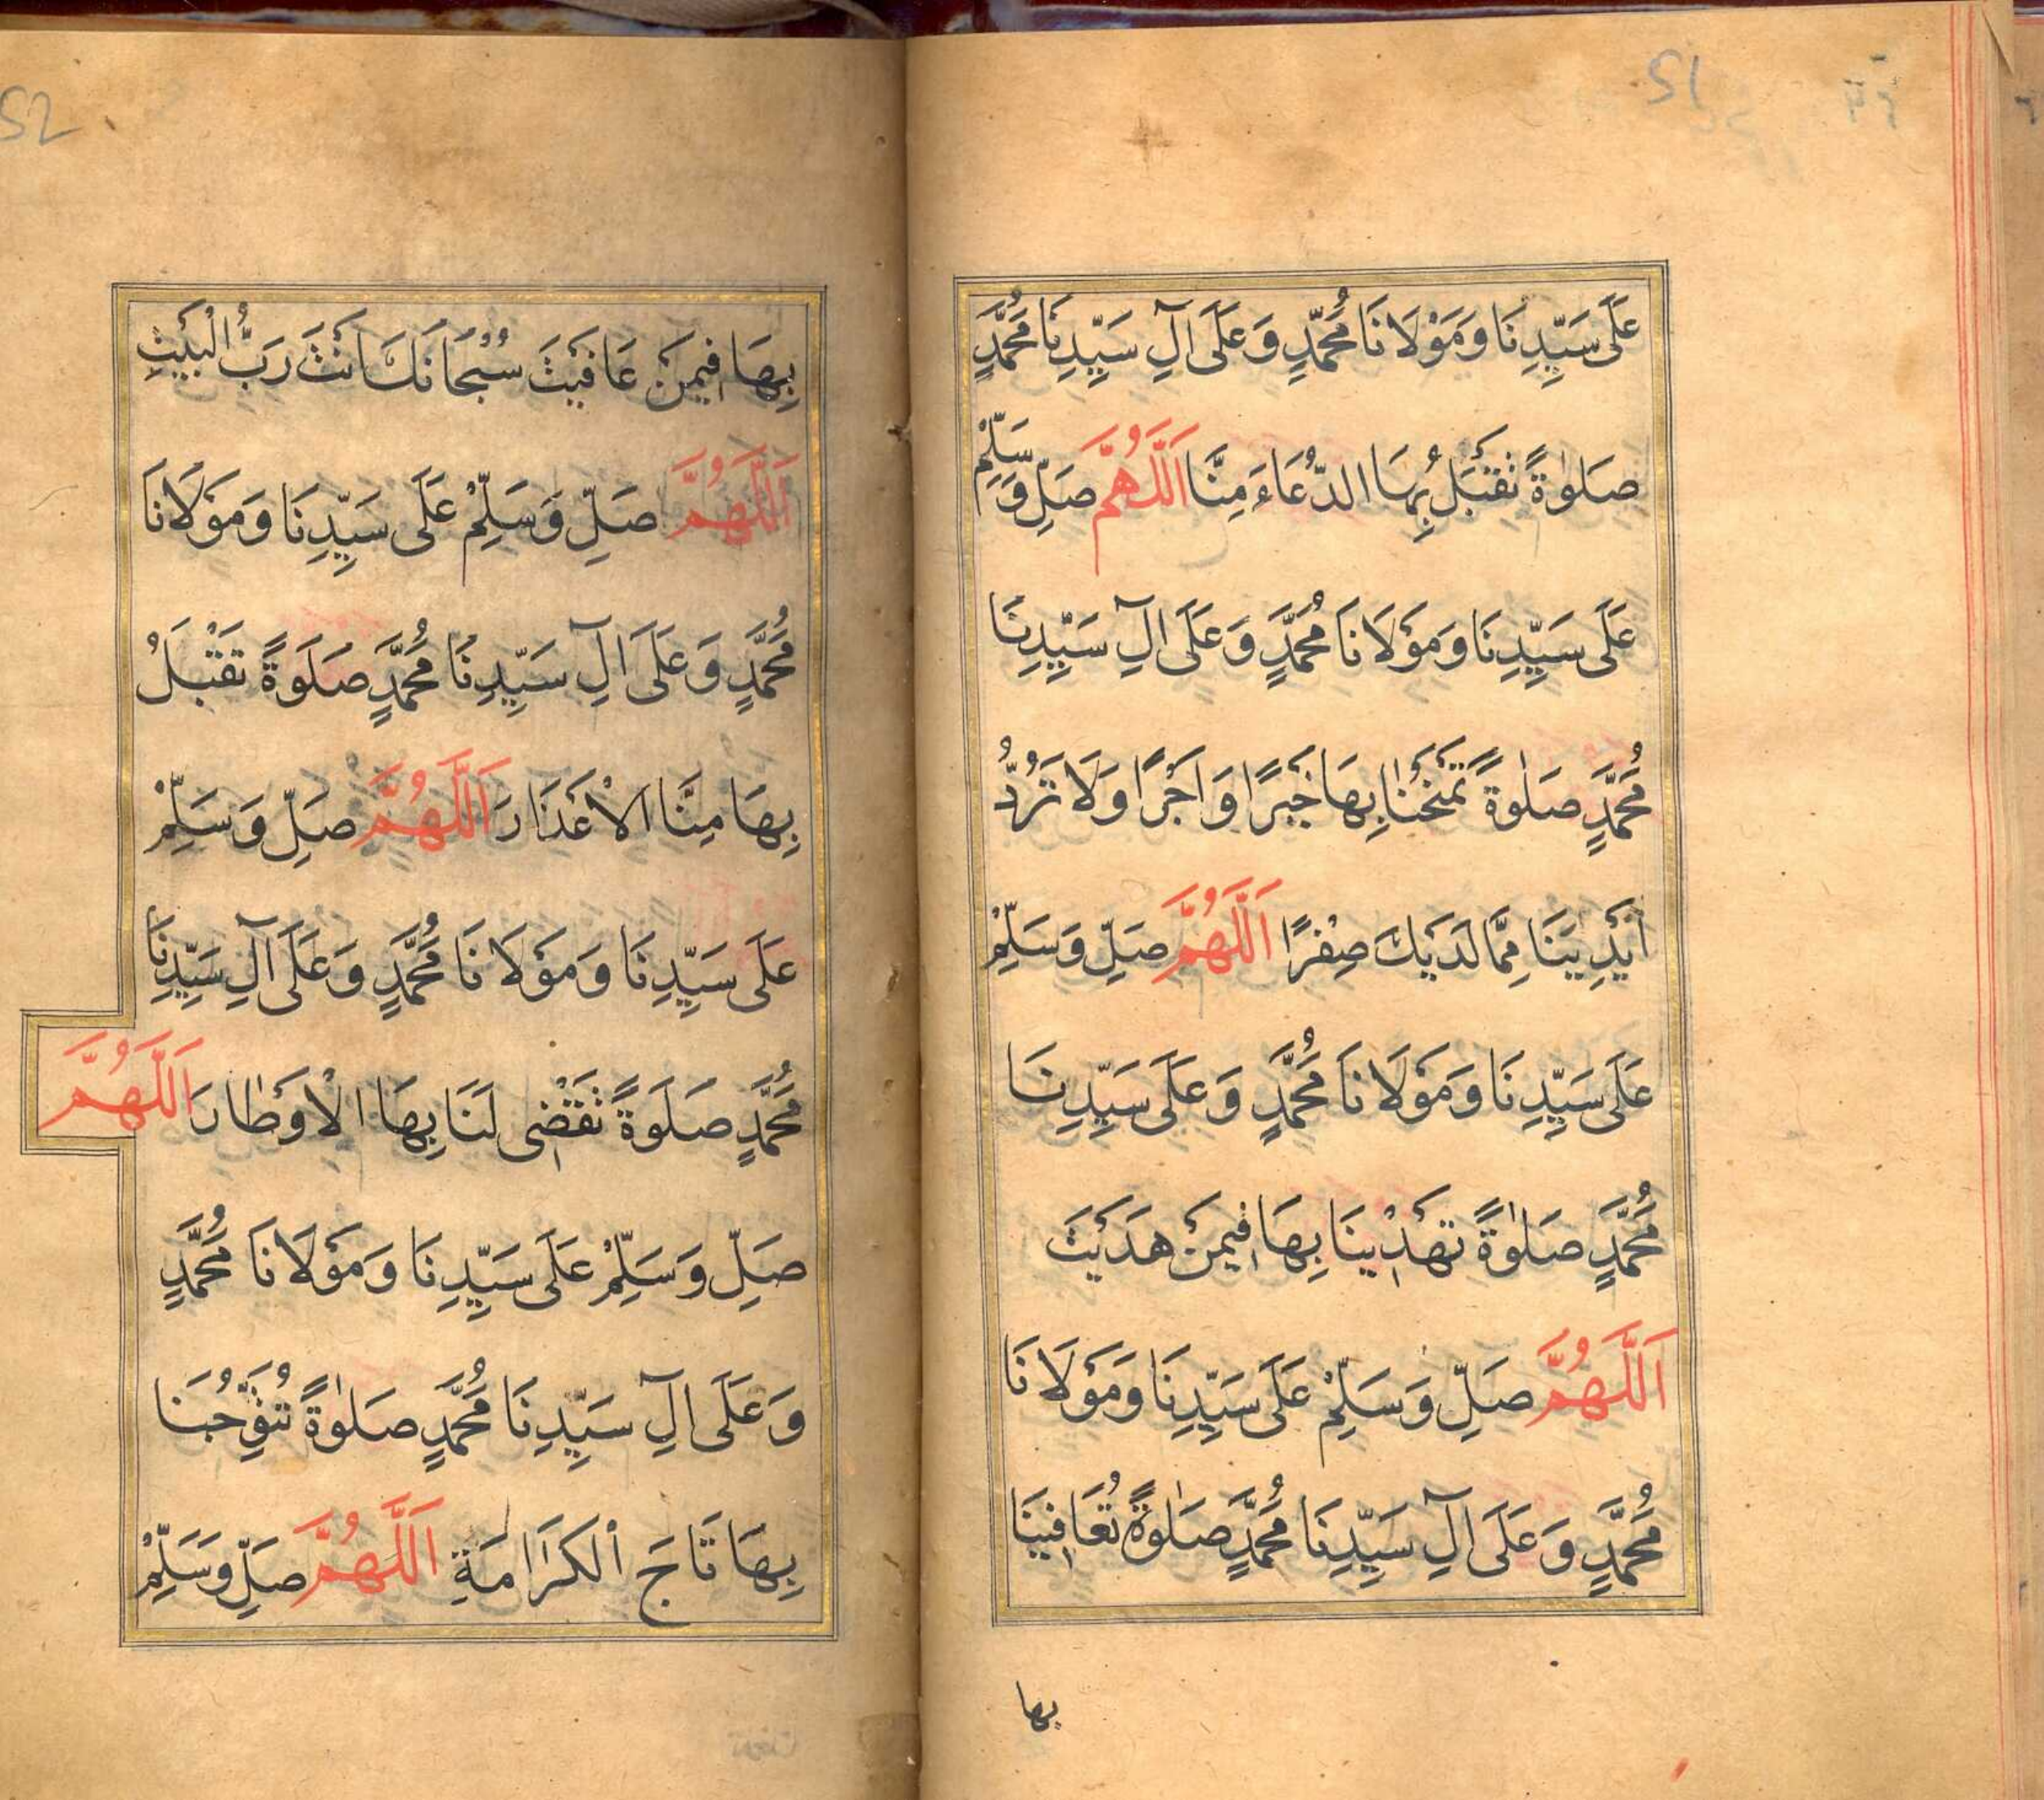 51
عَلَى سَيِّدِنَا وَمَوْلَانَا مُحَمَّدٍ وَعَلَى آلِ سَيِّدِنَا مُحَمَّدٍ
صَلٰوةً تَقْبَلُ بِهَا الدُّعَاءَ مِنَّا اَللّٰهُمَّ صَلِّ وَسَلِّمْ
عَلَى سَيِّدِنَا وَمَوْلَانَا مُحَمَّدٍ وَعَلَى آلِ سَيِّدِنَا
مُحَمَّدٍ صَلٰوةً تَمْنَحُنَا بِهَا خَيْرًا وَاَجْرًا وَلَا تَرُدُّ
اَيْدِيَنَا مِمَّا لَدَيْكَ صِفْرًا اَللّٰهُمَّ صَلِّ وَسَلِّمْ
عَلَى سَيِّدِنَا وَمَوْلَانَا مُحَمَّدٍ وَعَلَى سَيِّدِنَا
مُحَمَّدٍ صَلٰوةً تَهْدِينَا بِهَا فِيمَنْ هَدَيْتَ
اَللّٰهُمَّ صَلِّ وَسَلِّمْ عَلَى سَيِّدِنَا وَمَوْلَانَا
مُحَمَّدٍ وَعَلَى آلِ سَيِّدِنَا مُحَمَّدٍ صَلٰوةً تُعَافِينَا
بها
52
بِهَا فِيمَنْ عَافَيْتَ سُبْحَانَكَ اَنْتَ رَبُّ الْبَيْتِ
اَللّٰهُمَّ صَلِّ وَسَلِّمْ عَلَى سَيِّدِنَا وَمَوْلَانَا
مُحَمَّدٍ وَعَلَى آلِ سَيِّدِنَا مُحَمَّدٍ صَلَوةً تَقْبَلُ
بِهَا مِنَّا الْاَعْذَارَ اَللّٰهُمَّ صَلِّ وَسَلِّمْ
عَلَى سَيِّدِنَا وَمَوْلَانَا مُحَمَّدٍ وَعَلَى آلِ سَيِّدِنَا
مُحَمَّدٍ صَلَوةً تَقْضِى لَنَا بِهَا الْاَوْطَارَ اَللّٰهُمَّ
صَلِّ وَسَلِّمْ عَلَى سَيِّدِنَا وَمَوْلَانَا مُحَمَّدٍ
وَعَلَى آلِ سَيِّدِنَا مُحَمَّدٍ صَلٰوةً تُتَوِّجُنَا
بِهَا تَاجَ الْكَرَامَةِ اَللّٰهُمَّ صَلِّ وَسَلِّمْ